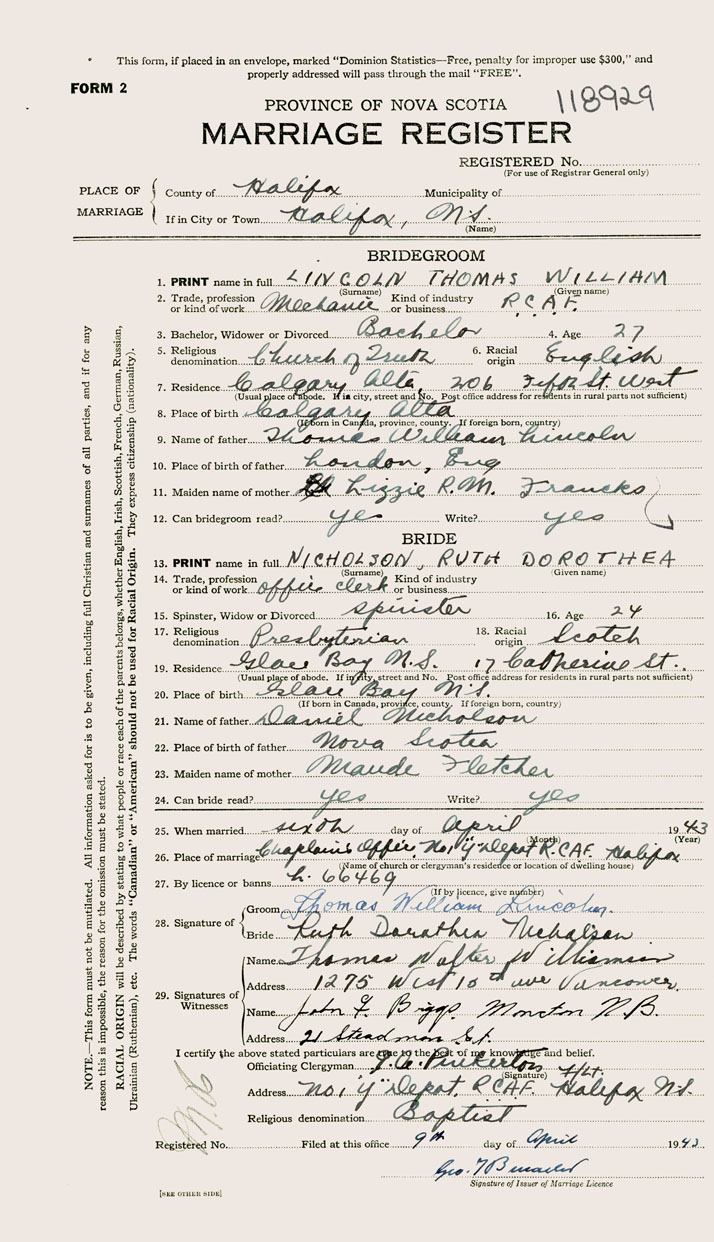 This form, if placed in an envelope, marked “Dominion Statistics—Free, penalty for improper use $300,” and
properly addressed will pass through the mail “FREE”.
FORM 2
118929
PROVINCE OF NOVA SCOTIA
MARRIAGE REGISTER
REGISTERED No.
(For use of Registrar General only)
PLACE OF MARRIAGE
County of Halifax Municipality of
If in City or Town Halifax, N.S.
(Name)
BRIDEGROOM
1. PRINT name in full LINCOLN THOMAS WILLIAM
(Surname) (Given name)
2. Trade, profession or kind of work Mechanic Kind of industry or business R.C.A.F.
3. Bachelor, Widower or Divorced Bachelor 4. Age 27
5. Religious denomination Church of Truth 6. Racial origin English
7. Residence Calgary Alta, 206 St. West
(Usual place of abode. If in city, street and No. Post office address for residents in rural parts not sufficient)
8. Place of birth Calgary Alta
(If born in Canada, province, county. If foreign born, country)
9. Name of father Thomas William Lincoln
10. Place of birth of father London, Eng
11. Maiden name of mother Lizzie R.M. Francks
12. Can bridegroom read? yes Write? yes
BRIDE
13. PRINT name in full NICHOLSON, RUTH DOROTHEA
(Surname) (Given name)
14. Trade, profession or kind of work office clerk Kind of industry or business
15. Spinster, Widow or Divorced spinster 16. Age 24
17. Religious denomination Presbyterian 18. Racial origin Scotch
19. Residence Glace Bay N.S. 17 Catherine St.
(Usual place of abode. If in city, street and No. Post office address for residents in rural parts not sufficient)
20. Place of birth Glace Bay N.S.
(If born in Canada, province, county. If foreign born, country)
21. Name of father Daniel Nicholson
22. Place of birth of father Nova Scotia
23. Maiden name of mother Maude Fletcher
24. Can bride read? yes Write? yes
25. When married sixth day of April 1943
(Month) (Year)
26. Place of marriage Chaplain's Office, No. 1 "Y" Depot R.C.A.F. Halifax
(Name of church or clergyman's residence or location of dwelling house)
27. By licence or banns L. 66469
(If by licence, give number)
28. Signature of
Groom Thomas William Lincoln
Bride Ruth Dorothea Nicholson
29. Signatures of Witnesses
Name Thomas Walter Williamson
Address 1275 West 10th ave Vancouver
Name John F. Briggs, Moncton N.B.
Address 21 Steadman St.
I certify the above stated particulars are true to the best of my knowledge and belief.
Officiating Clergyman Pinkerton F/Lt.
(Signature)
Address No. 1 "Y" Depot, R.C.A.F. Halifax N.S.
Religious denomination Baptist
Registered No. Filed at this office 9th day of April 1943
Signature of Issuer of Marriage Licence
[SEE OTHER SIDE]
NOTE.—This form must not be mutilated. All information asked for is to be given, including full Christian and surnames of all parties, and if for any
reason this is impossible, the reason for the omission must be stated.
RACIAL ORIGIN will be described by stating to what people or race each of the parents belongs, whether English, Irish, Scottish, French, German, Russian,
Ukrainian (Ruthenian), etc. The words “Canadian” or “American” should not be used for Racial Origin. They express citizenship (nationality).